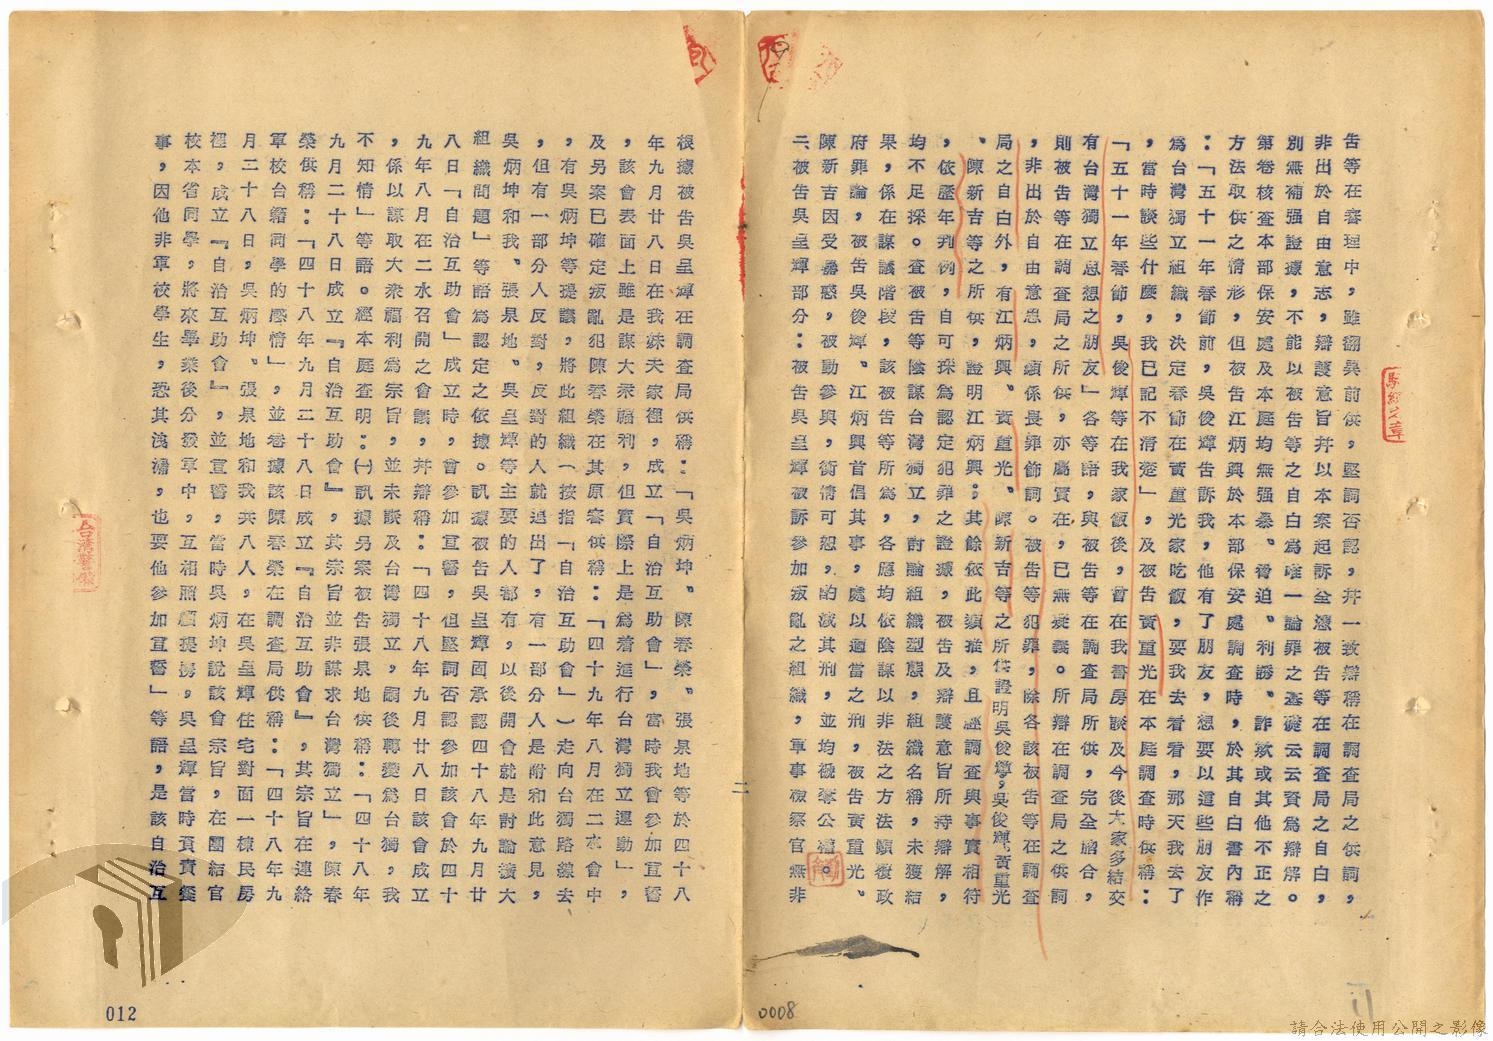 告等在審理中，雖翻異前供，堅詞否認，并一致辯稱在調查局之供詞，
非出於自由意志，辯護意旨并以本案起訴全憑被告等在調查局之自白，
別無補强證據，不能以被告等之自白為唯一論罪之基礎云云資為辯解。
第卷核查本部保安處及本庭均無强暴。脅迫。利誘。詐欺或其他不正之
方法取供之情形，但被告江炳興於本部保安處調查時，於其自白書內稱
：「五十一年春節前，吳俊輝告訴我，他有了朋友，想要以這些朋友作
為台灣獨立組織，決定春節在黃重光家吃飯，要我去看看，那天我去了
，當時談些什麼，我已記不清楚」，及被告黃重光在本庭調查時供稱：
「五十一年春節，吳俊輝等在我家飯後，曾在我書房談及今後大家多結交
有台灣獨立思想之朋友」各等語，與被告等在調查局所供，完全脗合，
則被告等在調查局之所供，亦屬實在，已無疑義。所辯在調查局之供詞
，非出於自由意思，顯係畏罪飾詞。被告等犯罪，除各該被告等在調查
局之自白外，有江炳興。黃重光。陳新吉等之所供證明吳俊輝，吳俊輝，黃重光
。陳新吉等之所供，證明江炳興；其餘依此類推，且經調查與事實相符
，依歷年判例，自可採為認定犯罪之證據，被告及辯護意旨所持辯解，
均不足採。查被告等陰謀台灣獨立，討論組織型態，組織名稱，未獲結
果，係在謀議階段，該被告等所為，各應均依陰謀以非法之方法顛覆政
府罪論，被告吳俊輝。江炳興首倡其事，處以適當之刑，被告黃重光。
陳新吉因受蠱惑，被動參與，衡情可恕，酌減其刑，並均褫奪公權。
二被告吳呈輝部分：被告吳呈輝被訴參加叛亂之組織，軍事檢察官無非
根據被告吳呈輝在調查局供稱：「吳炳坤。陳春榮。張泉地等於四十八
年九月廿八日在我妹夫家裡，成立「自治互助會」，當時我曾參加宣誓
，該會表面上雖是謀大衆福利，但實際上是為着進行台灣獨立運動」，
及另案已確定叛亂犯陳春榮在其原審供稱：「四十九年八月在二水會中
，有吳炳坤等提議，將此組織（按指「自治互助會」）走向台獨路線去
，但有一部分人反對，反對的人就退出了，有一部分人是附和此意見，
吳炳坤和我。張泉地。吳呈輝等主要的人都有，以後開會就是討論擴大
組織問題」」等語為認定之依據。訊據被告吳呈輝固承認四十八年九月廿
八日「自治互助會」成立時，曾參加宣誓，但堅詞否認參加該會於四十
九年八月在二水召開之會議，并辯稱：「四十八年九月廿八日該會成立
，係以謀取大衆福利為宗旨，並未談及台灣獨立，嗣後轉變為台獨，我
不知情」等語。經本庭查明：㈠訊據另案被告張泉地供稱：「四十八年
九月二十八日成立『自治互助會』，其宗旨並非謀求台灣獨立」，陳春
榮供稱：「四十八年九月二十八日成立『自治互助會』，其宗旨在連絡
軍校台籍同學的感情」，並卷據該陳春榮在調查局供稱：「四十八年九
月二十八日，吳炳坤。張泉地和我共八人，在吳呈輝住宅對面一棟民房
裡，成立『自治互助會』，並宣誓，當時吳炳坤說該會宗旨，在團結官
校本省同學，將來學業後分發軍中，互相照顧提拐，吳呈輝當時負責籌
事，因他非軍校學生，恐其洩漏，也要他參加宣誓」等語，是該自治互
二
012
0008
騎縫之章
請合法使用公開之影像